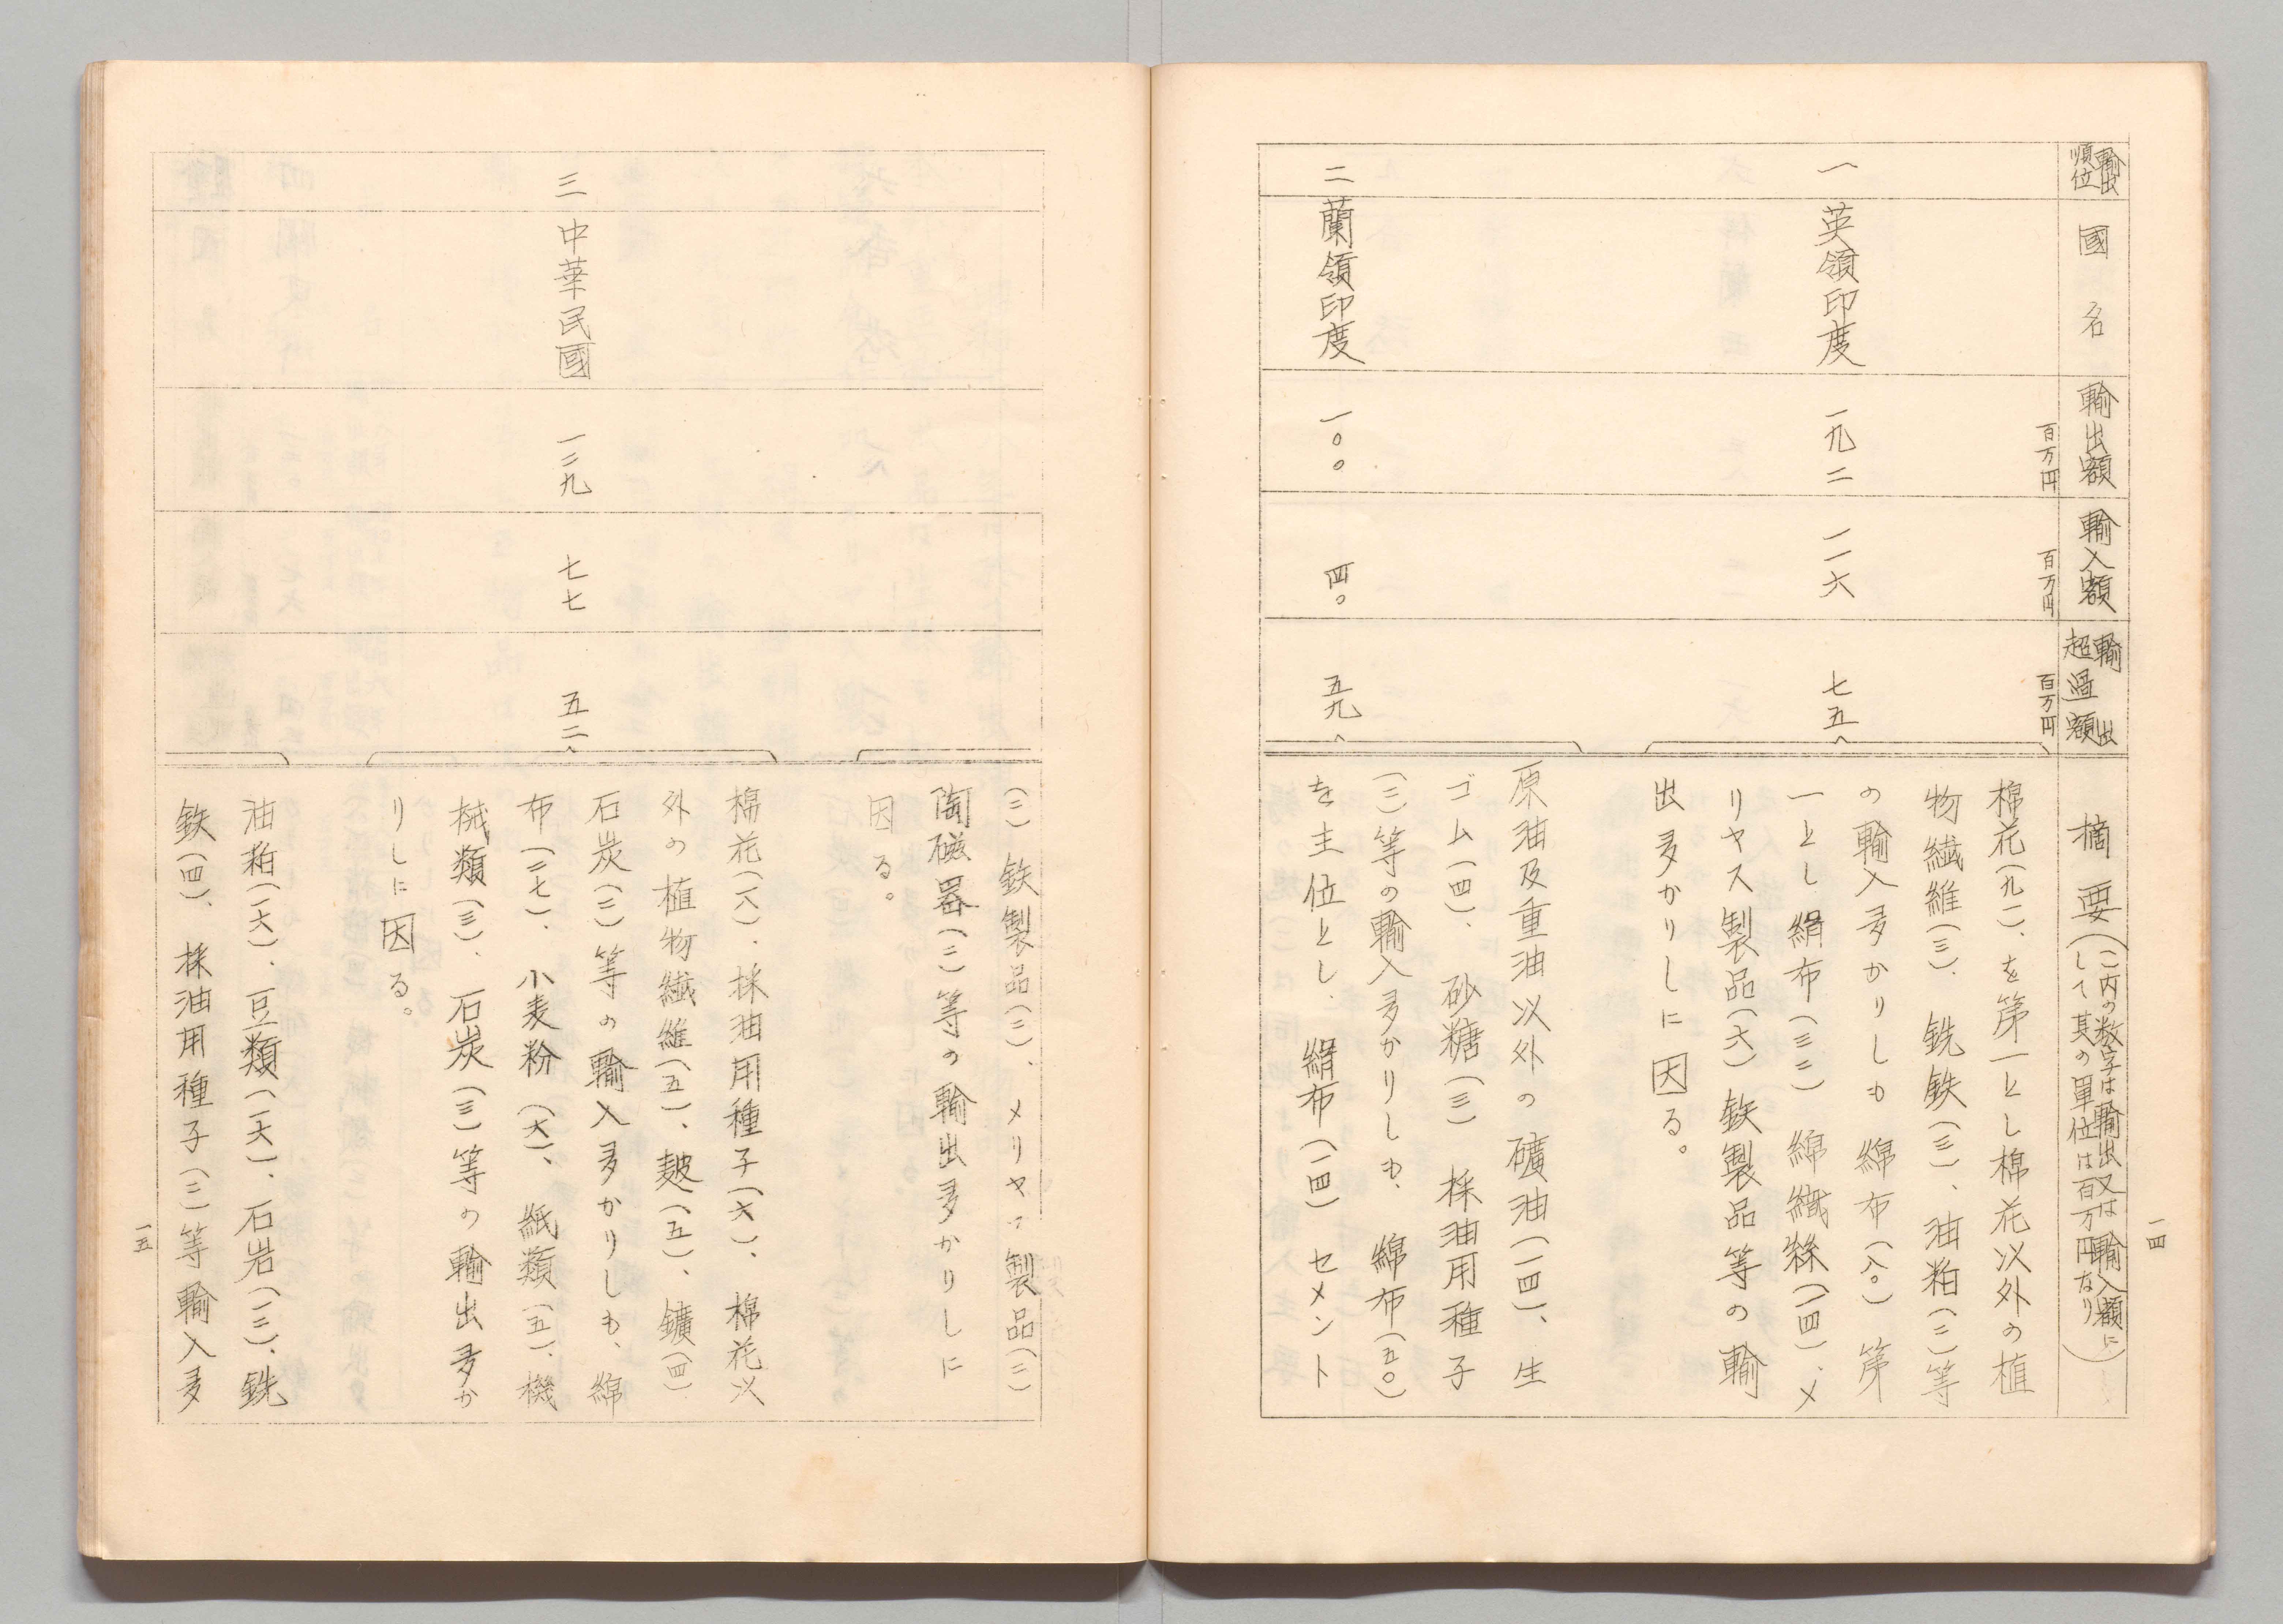 一四
輸出順位
國名
輸出額
輸入額
輸出超過額
摘要(()内の数字は輸出又は輸入額に
して其の單位は百万円なり)
百万円
百万円
百万円
一
英領印度
一九二
一一六
七五
棉花(九一)、を第一とし棉花以外の植
物繊維(三)、銑鉄(三)、油粕(二)等
の輸入多かりしも綿布(八〇)第
一とし絹布(三二)綿織絲(一四)、メ
リヤス製品(六)鉄製品等の輸
出多かりしに因る。
二
蘭領印度
一〇〇
四〇
五九
原油及重油以外の礦油(一四)、生
ゴム(四)、砂糖(三)採油用種子
(二)等の輸入多かりしも、綿布(五〇)
を主位とし、絹布(一四)セメント
(三)鉄製品(三)、メリヤス製品(二)
陶磁器(二)等の輸出多かりしに
因る。
三
中華民國
一二九
七七
五二
棉花(一八)、採油用種子(六)、棉花以
外の植物繊維(五)、麸(五)、鑛(四)
石炭(三)等の輸入多かりしも、綿
布(二七)、小麦粉(六)、紙類(五)、機
械類(三)、石炭(三)等の輸出多か
りしに因る。
油粕(一六)、豆類(一六)、石岩(三)、銑
鉄(四)、採油用種子(三)等輸入多
一五